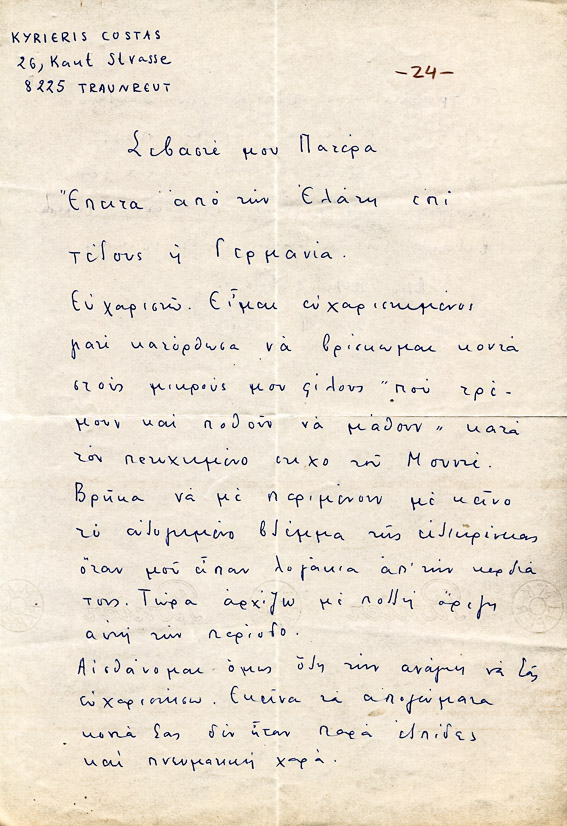 KYRIERIS COSTAS
26, Kant Strasse
8225 TRAUNREUT
-24-
Σεβαστέ μου Πατέρα
Ἔπειτα ἀπό τήν Ἐλάτη ἐπί
τέλους ἡ Γερμανία.
Εὐχαριστῶ. Εἶμαι εὐχαριστημένος
γιατί κατόρθωσα νά βρίσκωμαι κοντά
στούς μικρούς μου φίλους "πού τρέ-
μουν καί ποθοῦν νά μάθουν" κατά
τόν πετυχημένο στίχο τοῦ
Βρῆκα νά μέ περιμένουν μέ κεῖνο
τό εὐλογημένο βλέμμα τῆς εἰλικρίνειας
ὅταν μοῦ εἶπαν λογάκια ἀπ' τήν καρδιά
τους. Τώρα ἀρχίζω μέ πολλή ὄρεξη
αὐτή τήν περίοδο.
Αἰσθάνομαι ὅμως ὅλη τήν ἀνάγκη νά Σᾶς
εὐχαριστήσω. Ἐκεῖνα τά ἀπογεύματα
κοντά Σας δέν ἦταν παρά ἐλπίδες
καί πνευματική χαρά.